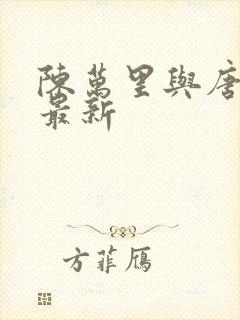 陳萬里與唐
最新
方菲鴈